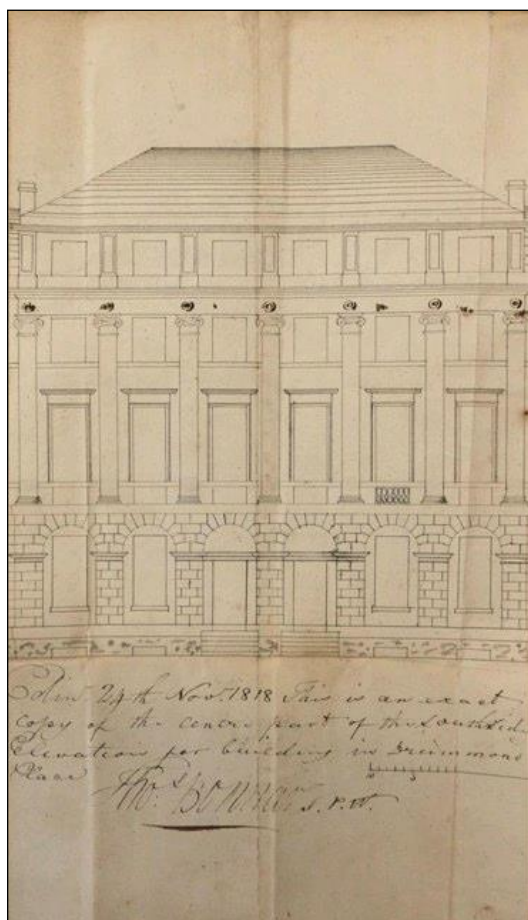 Edin.r 24th Nov.r 1818 This is an exact
copy of the centre part of the South side
Elevation for building in Drummond
Place
10 5
Tho.s Bonnar S. P. W.